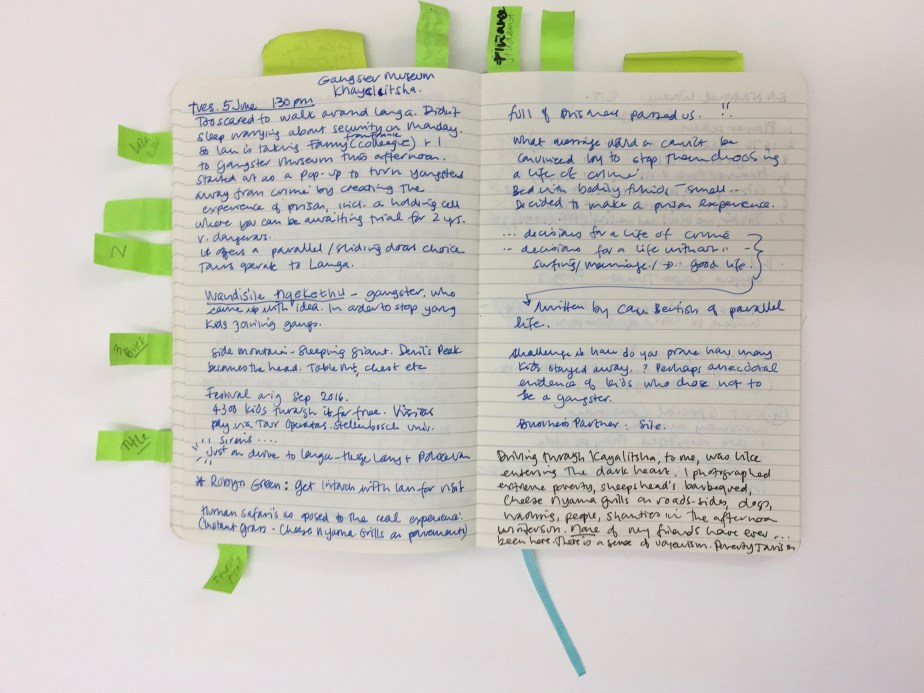 Gangster Museum
Khayalitsha.
Tues. 5 June 1 30 pm
Too scared to walk around Langa. Didn't
sleep worrying about security on Monday.
So Ian is taking Fanny (colleague) + 1
from France
to Gangster Museum this afternoon.
Started at as a Pop-up to turn yongsters
away from crime by creating the
experience of prison, incl. a holding cell
where you can be awaiting trial for 2 yrs.
v. dangerous.
It offers a parallel / sliding doors choice
Tours operate to Langa.
Wandisile Nqekethu – gangster, who
came up with idea. In order to stop young
kids joining gangs.
Side mountain – Sleeping giant. Devil's Peak
becomes the head. Table Mt, chest etc
Festival orig Sep 2016.
4300 kids through it for free. Visitors
pay via Tour Operators. Stellenbosch univ.
Sirens ....
Just on drive to Langa – these long +
* Robyn Green: get intouch with Ian for visit
Human Safaris as oposed to the real experience.
(Instant grass – Cheese Nyama Grills on pavements)
full of prisoners passed us. !!
What message would a convict be
convinced by to stop them choosing
a life of crime.
Bed with bodily fluids – smell...
Decided to make a prison experience.
... decisions for a life of crime
... decisions for a life without..
surfing/marriage/ → good life.
written by Cau Section of parallel
life.
Challenge is how do you prove how many
kids stayed away..? Perhaps anecdotal
evidence of kids who chose not to
be a gangster.
Business Partner: Site.
Driving through Kayalitsha, to me, was like
entering the dark heart. I photographed
extreme poverty, sheepshead's barbequed,
Cheese Nyama Grills on roads-sides, dogs,
washing, people, shanties in the afternoon
winter sun. None of my friends have ever ...
been here. There is a sense of voyeurism. Poverty Tourism
N